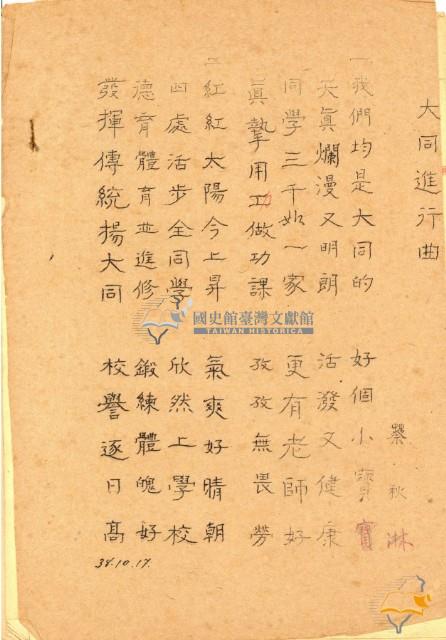 大同進行曲
蔡秋淋
一 我們均是大同的 好個小寶寶
天真爛漫又明朗 活潑又健康
同學三千如一家 更有老師好
眞摯用功做功課 孜孜無畏勞
二 紅紅太陽今上昇 氣爽好晴朝
四處活步全同學 欣然上學校
德育體育並進修 鍛練體魄好
發揮傳統揚大同 校譽逐日高
38.10.17.
國史館臺灣文獻館
TAIWAN HISTORICA